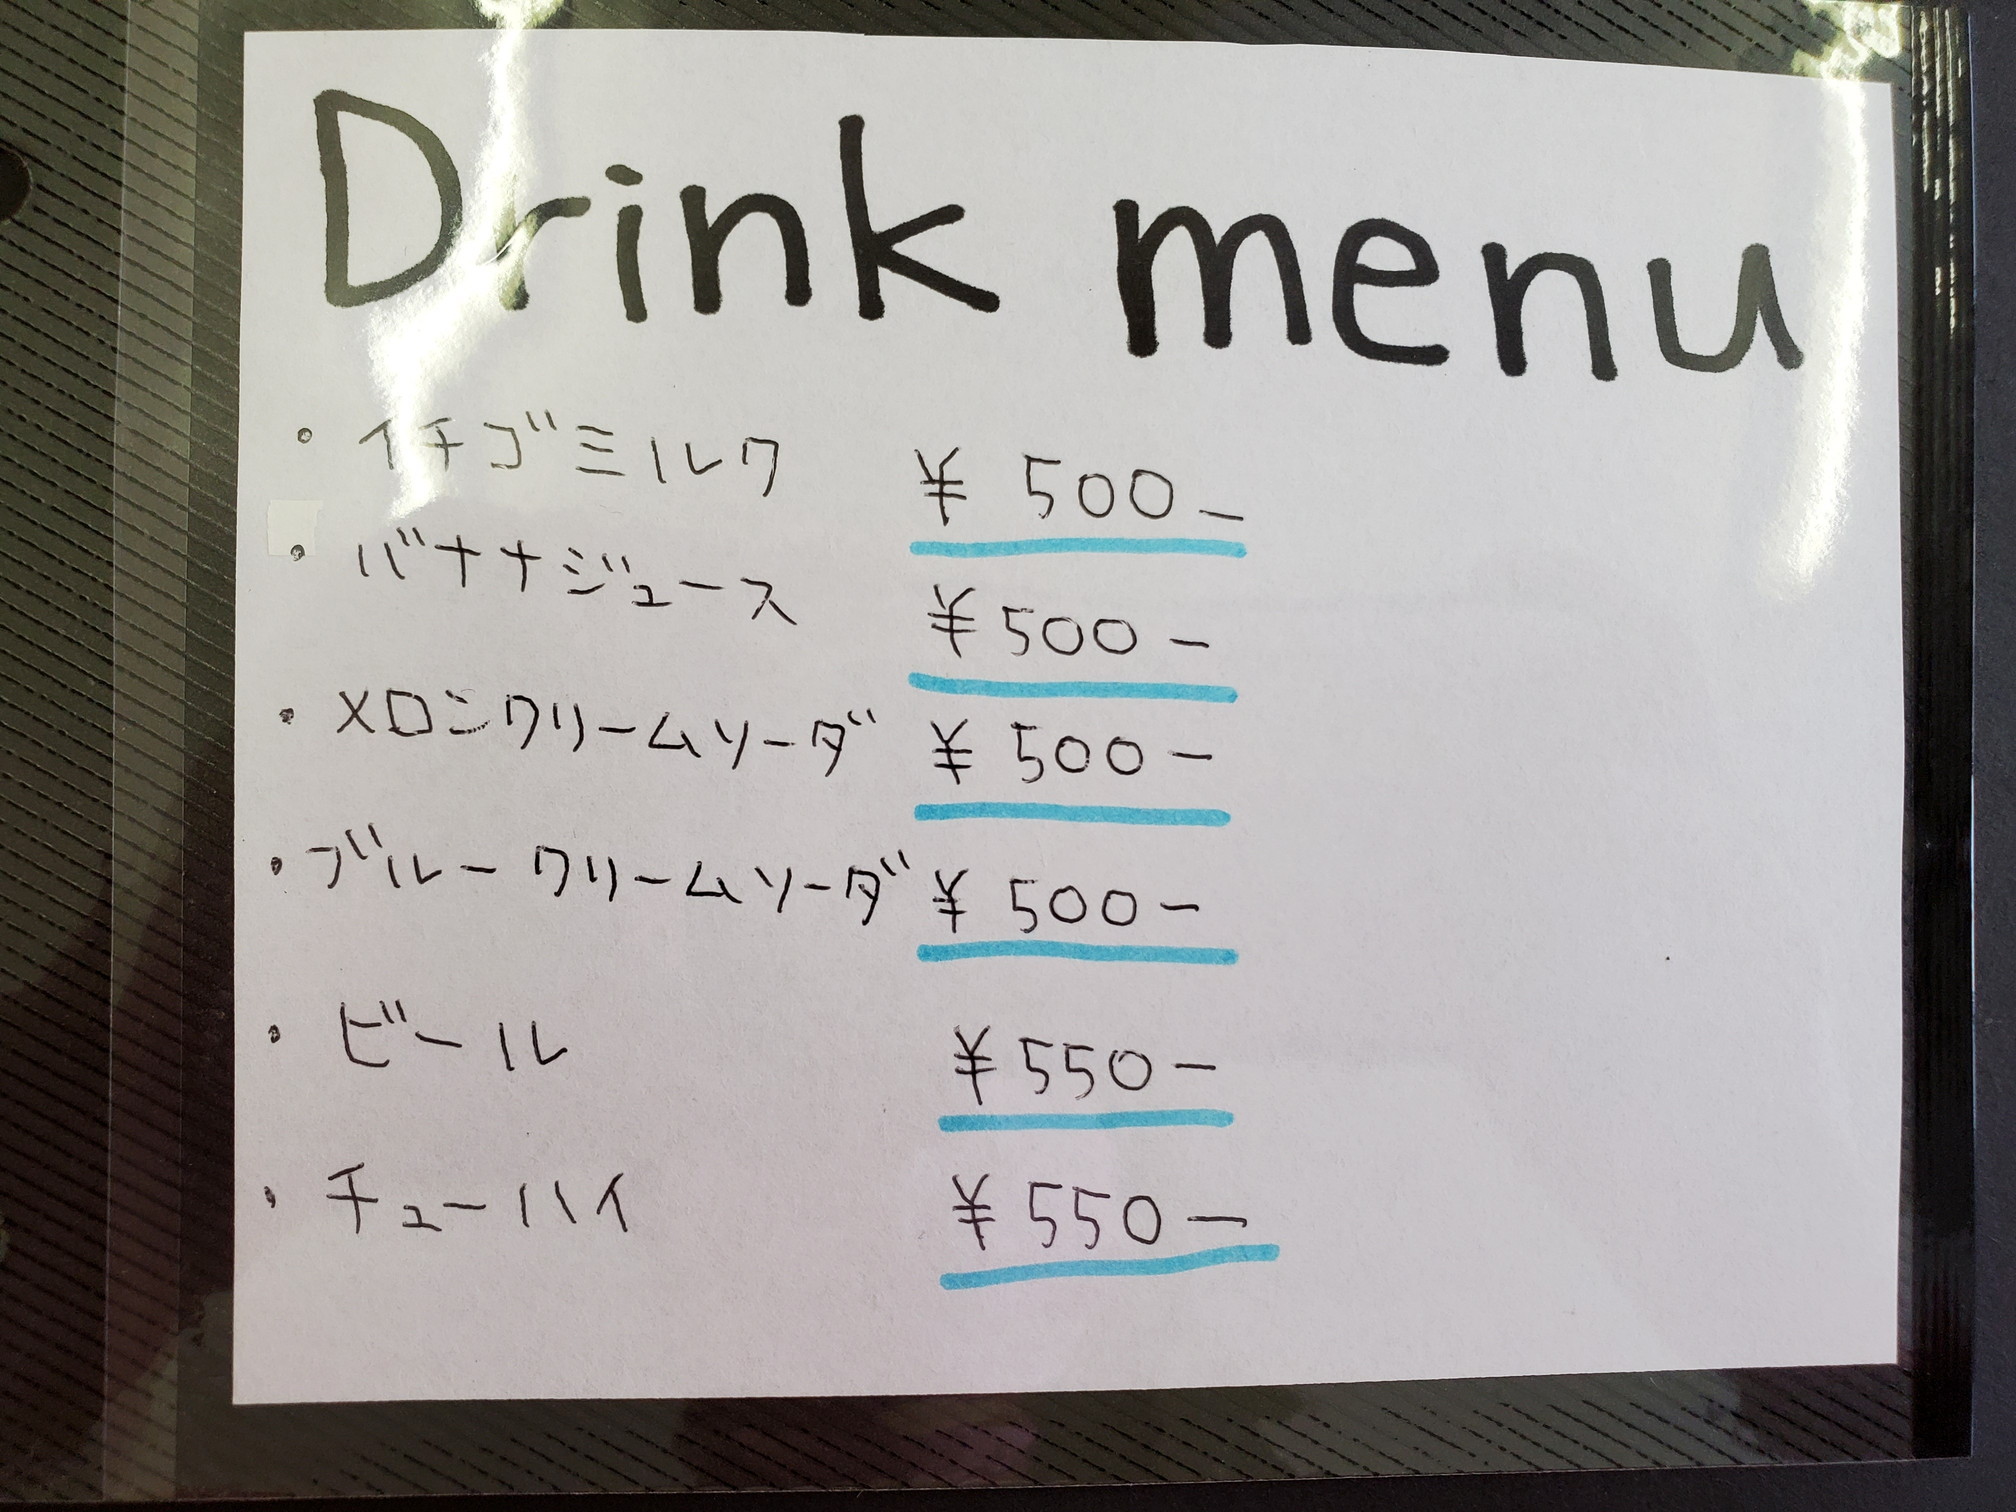 Drink menu
・イチゴミルク ¥ 500-
・バナナジュース ¥500-
・メロンクリームソーダ ¥ 500-
・ブルークリームソーダ ¥ 500-
・ビール ¥550-
・チューハイ ¥550-